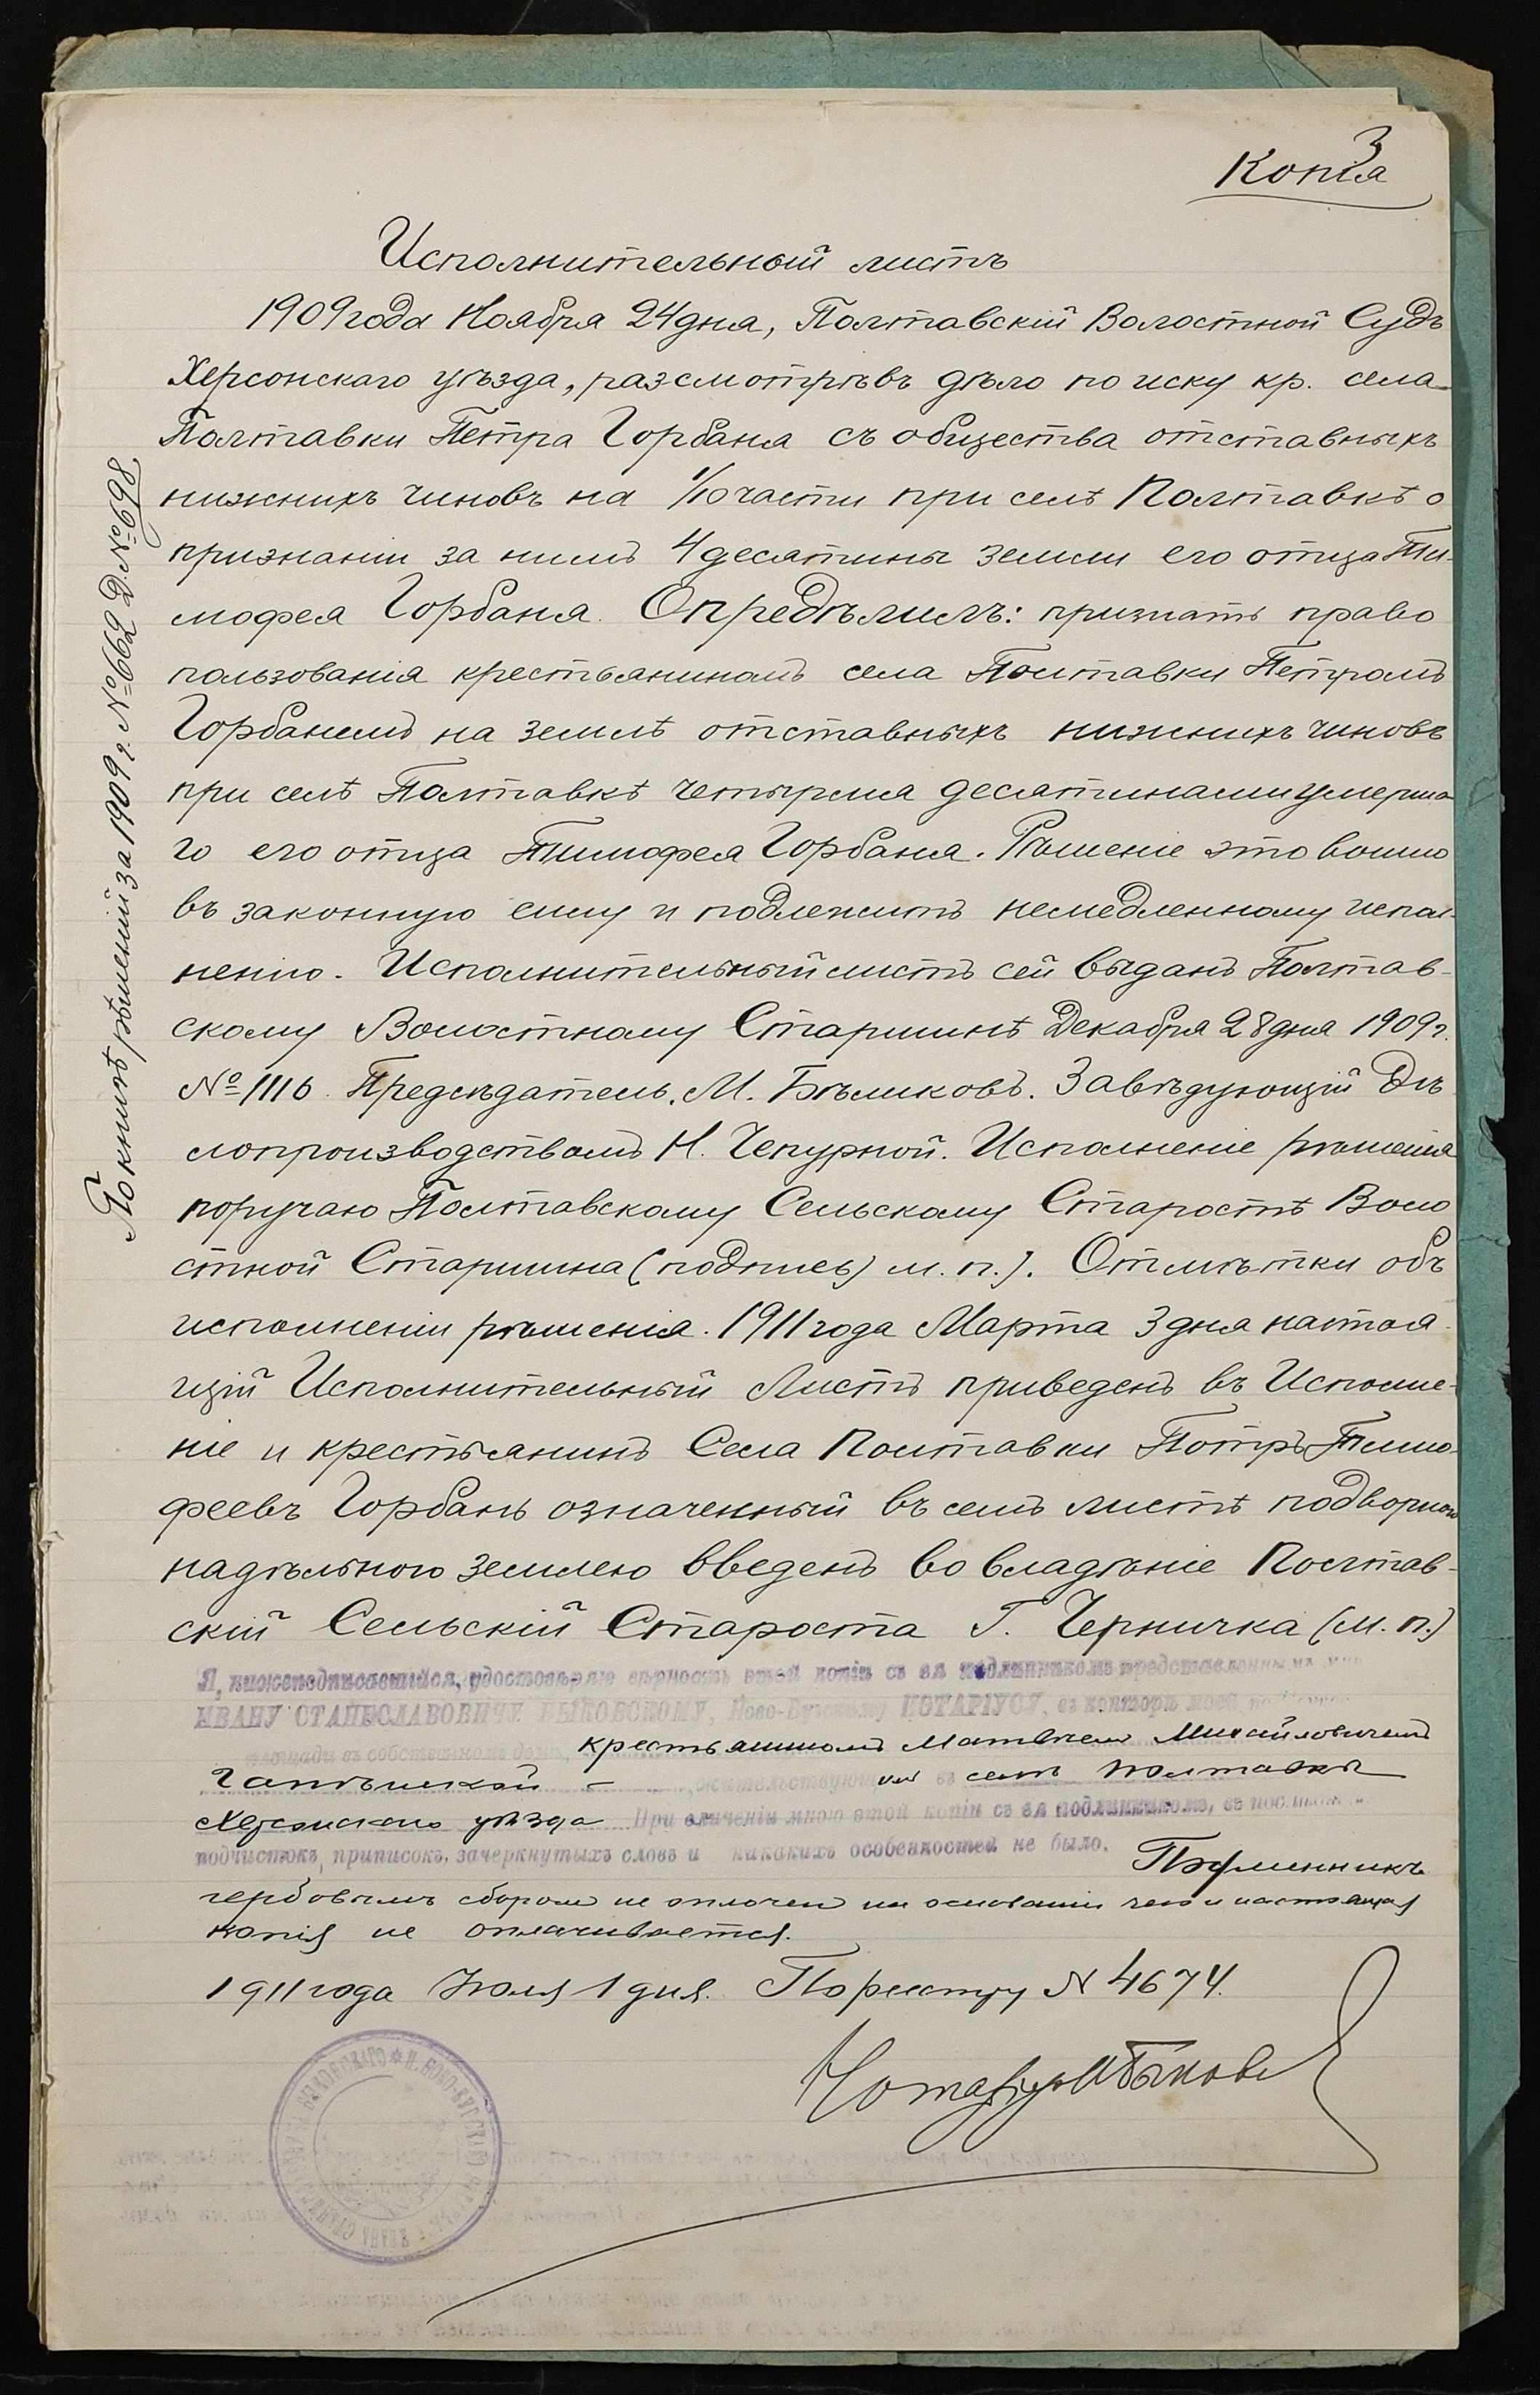 3
Копія
Исполнительный листъ
1909 года Ноября 24 дня, Полтавскій Волостной Судъ
Херсонскаго уѣзда, разсмотрѣвъ дѣло по иску кр. села
Полтавки Петра Горбаня съ общества отставныхъ
нижнихъ чиновъ на 1/10 части при селѣ Полтавкѣ о
признаніи за нимъ 4 десятины земли его отца Ти-
мофея Горбаня. Опредѣлилъ: признать право
пользованія крестьяниномъ села Полтавки Петромъ
Горбанемъ на землѣ отставныхъ нижнихъ чиновъ
при селѣ Полтавкѣ четырмя десятинами умерша-
го его отца Тимофея Горбаня. Рѣшеніе это вошло
въ законную силу и подлежитъ немедленному испол-
ненію. Исполнительный листъ сей выданъ Полтав-
скому Волостному Старшинѣ Декабря 28 дня 1909 г.
№ 1116. Предсѣдатель, М. Бѣликовъ. Завѣдующій Дѣ
лопроизводствомъ Н. Чепурной. Исполненіе рѣшенія
поручаю Полтавскому Сельскому Старостѣ Воло
стной Старшина (подпись) м. п.). Отмѣтки объ
исполненіи рѣшенія. 1911 года Марта 3 дня настоя-
щій Исполнительный Листъ приведенъ въ Исполне-
ніе и крестьянинъ Села Полтавки Потръ Тимо-
феевъ Горбань означенный въ семъ листѣ подворно
надѣльною землею введенъ во владѣніе Полтав-
скій Сельскій Староста Г. Черничка (м. п.)
По книгѣ рѣшеній за 1909 г. № 662 Д. № 698
Я, нижеподписавшійся, удостовѣряю вѣрность этой копіи съ ея подлинникомъ представленнымъ мнѣ
ИВАНУ СТАНИСЛАВОВИЧУ БЫКОВСКОМУ, Ново-Бугскому НОТАРІУСУ, въ конторѣ моей
площади въ собственномъ домѣ, крестьяниномъ Матвѣемъ Михайловичемъ
жительствующимъ въ селѣ Полтавкѣ
Херсонскаго уѣзда При сличеніи мною этой копіи съ ея подлинникомъ, въ послѣднемъ
подчистокъ, приписокъ, зачеркнутыхъ словъ и никакихъ особенностей не было. Подлинникъ
гербовымъ сборомъ не оплоченъ на основаніи чего и настоящая
копія не оплачивается.
1911 года Іюля 1 дня. По реестру N 4674.
Нотаріусъ И Быковс